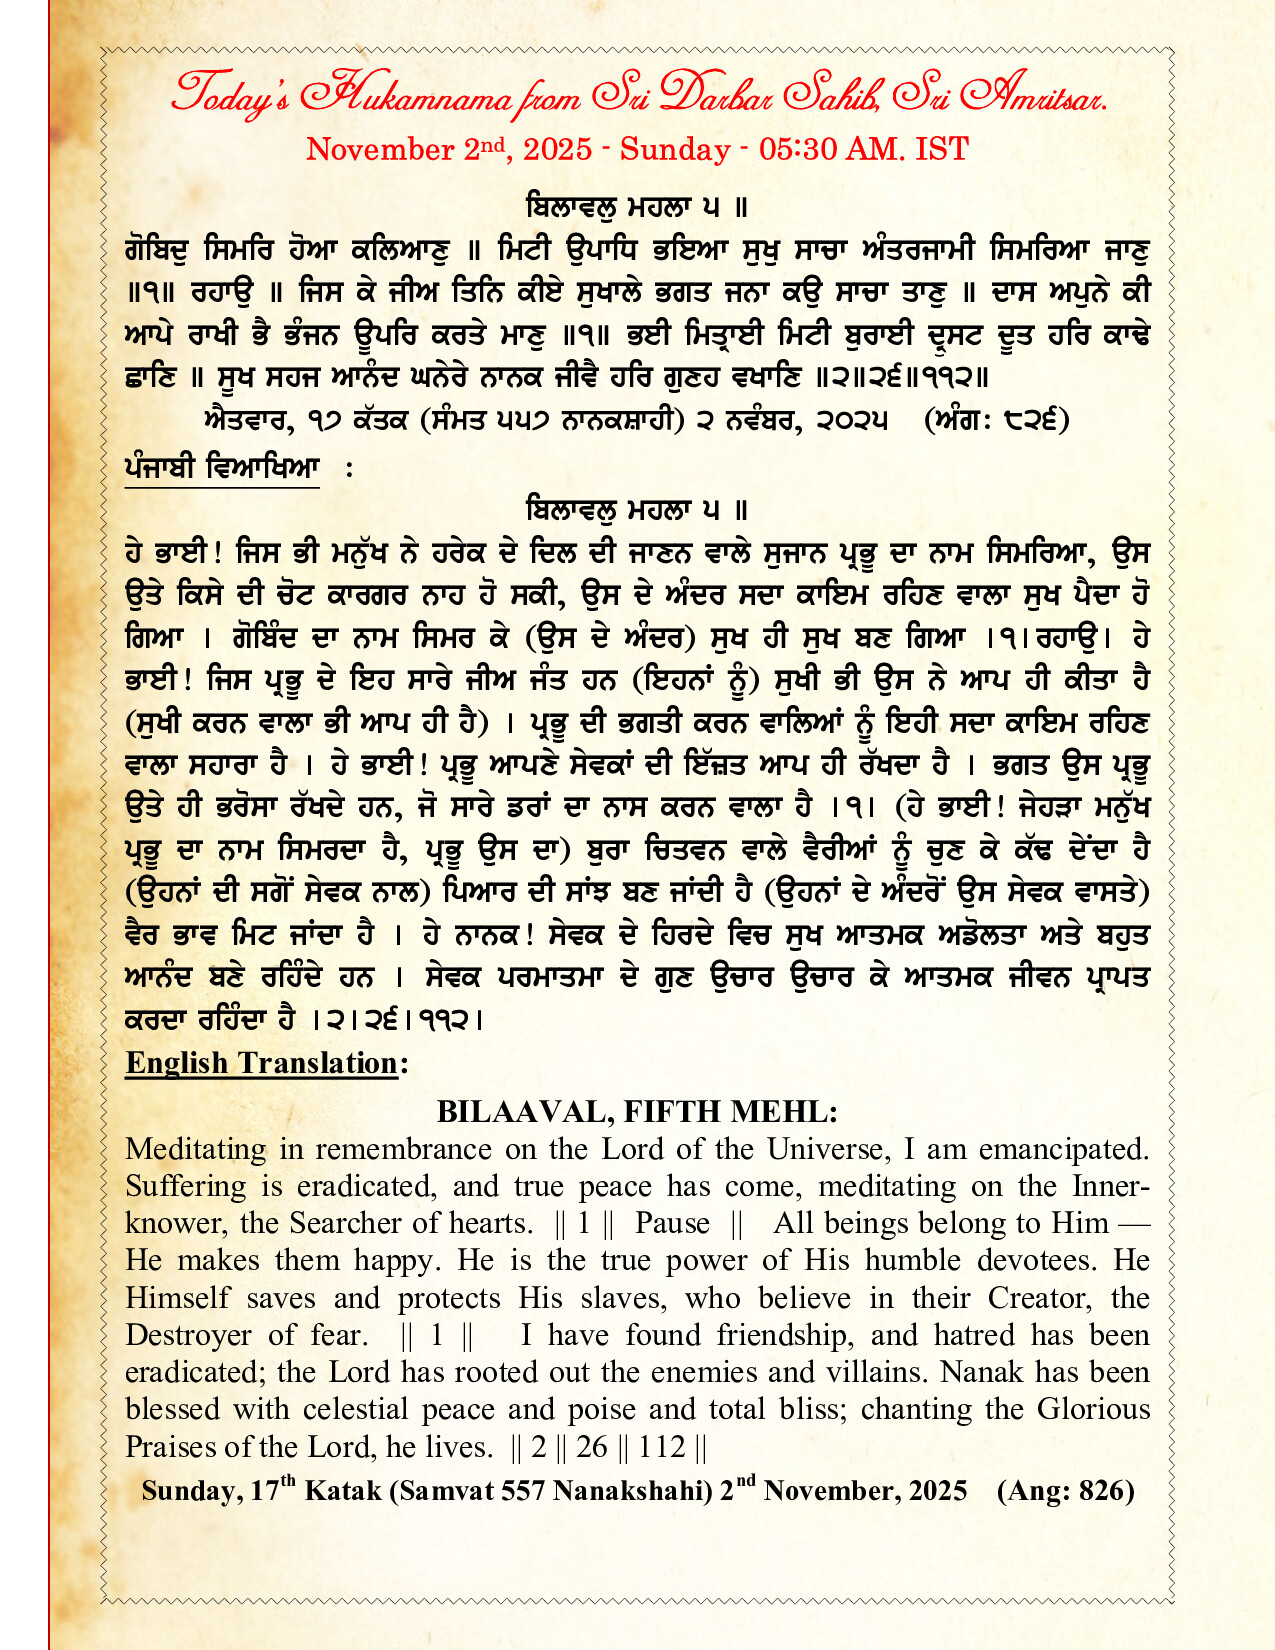 Today's Hukamnama from Sri Darbar Sahib, Sri Amritsar.
November 2nd, 2025 - Sunday - 05:30 AM. IST
ਬਿਲਾਵਲੁ ਮਹਲਾ ੫ ॥
ਗੋਬਿਦੁ ਸਿਮਰਿ ਹੋਆ ਕਲਿਆਣੁ ॥ ਮਿਟੀ ਉਪਾਧਿ ਭਇਆ ਸੁਖੁ ਸਾਚਾ ਅੰਤਰਜਾਮੀ ਸਿਮਰਿਆ ਜਾਣੁ
॥੧॥ ਰਹਾਉ ॥ ਜਿਸ ਕੇ ਜੀਅ ਤਿਨਿ ਕੀਏ ਸੁਖਾਲੇ ਭਗਤ ਜਨਾ ਕਉ ਸਾਚਾ ਤਾਣੁ ॥ ਦਾਸ ਅਪੁਨੇ ਕੀ
ਆਪੇ ਰਾਖੀ ਭੈ ਭੰਜਨ ਊਪਰਿ ਕਰਤੇ ਮਾਣੁ ॥੧॥ ਭਈ ਮਿਤ੍ਰਾਈ ਮਿਟੀ ਬੁਰਾਈ ਦ੍ਰੁਸਟ ਦੂਤ ਹਰਿ ਕਾਢੇ
ਛਾਣਿ ॥ ਸੂਖ ਸਹਜ ਆਨੰਦ ਘਨੇਰੇ ਨਾਨਕ ਜੀਵੈ ਹਰਿ ਗੁਣਹ ਵਖਾਣਿ ॥੨॥੨੬॥੧੧੨॥
ਐਤਵਾਰ, ੧੭ ਕੱਤਕ (ਸੰਮਤ ੫੫੭ ਨਾਨਕਸ਼ਾਹੀ) ੨ ਨਵੰਬਰ, ੨੦੨੫ (ਅੰਗ: ੮੨੬)
ਪੰਜਾਬੀ ਵਿਆਖਿਆ :
ਬਿਲਾਵਲੁ ਮਹਲਾ ੫ ॥
ਹੇ ਭਾਈ! ਜਿਸ ਭੀ ਮਨੁੱਖ ਨੇ ਹਰੇਕ ਦੇ ਦਿਲ ਦੀ ਜਾਣਨ ਵਾਲੇ ਸੁਜਾਨ ਪ੍ਰਭੂ ਦਾ ਨਾਮ ਸਿਮਰਿਆ, ਉਸ
ਉਤੇ ਕਿਸੇ ਦੀ ਚੋਟ ਕਾਰਗਰ ਨਾਹ ਹੋ ਸਕੀ, ਉਸ ਦੇ ਅੰਦਰ ਸਦਾ ਕਾਇਮ ਰਹਿਣ ਵਾਲਾ ਸੁਖ ਪੈਦਾ ਹੋ
ਗਿਆ । ਗੋਬਿੰਦ ਦਾ ਨਾਮ ਸਿਮਰ ਕੇ (ਉਸ ਦੇ ਅੰਦਰ) ਸੁਖ ਹੀ ਸੁਖ ਬਣ ਗਿਆ ।੧।ਰਹਾਉ। ਹੇ
ਭਾਈ! ਜਿਸ ਪ੍ਰਭੂ ਦੇ ਇਹ ਸਾਰੇ ਜੀਅ ਜੰਤ ਹਨ (ਇਹਨਾਂ ਨੂੰ) ਸੁਖੀ ਭੀ ਉਸ ਨੇ ਆਪ ਹੀ ਕੀਤਾ ਹੈ
(ਸੁਖੀ ਕਰਨ ਵਾਲਾ ਭੀ ਆਪ ਹੀ ਹੈ) । ਪ੍ਰਭੂ ਦੀ ਭਗਤੀ ਕਰਨ ਵਾਲਿਆਂ ਨੂੰ ਇਹੀ ਸਦਾ ਕਾਇਮ ਰਹਿਣ
ਵਾਲਾ ਸਹਾਰਾ ਹੈ । ਹੇ ਭਾਈ! ਪ੍ਰਭੂ ਆਪਣੇ ਸੇਵਕਾਂ ਦੀ ਇੱਜ਼ਤ ਆਪ ਹੀ ਰੱਖਦਾ ਹੈ । ਭਗਤ ਉਸ ਪ੍ਰਭੂ
ਉਤੇ ਹੀ ਭਰੋਸਾ ਰੱਖਦੇ ਹਨ, ਜੋ ਸਾਰੇ ਡਰਾਂ ਦਾ ਨਾਸ ਕਰਨ ਵਾਲਾ ਹੈ ।੧। (ਹੇ ਭਾਈ! ਜੇਹੜਾ ਮਨੁੱਖ
ਪ੍ਰਭੂ ਦਾ ਨਾਮ ਸਿਮਰਦਾ ਹੈ, ਪ੍ਰਭੂ ਉਸ ਦਾ) ਬੁਰਾ ਚਿਤਵਨ ਵਾਲੇ ਵੈਰੀਆਂ ਨੂੰ ਚੁਣ ਕੇ ਕੱਢ ਦੇਂਦਾ ਹੈ
(ਉਹਨਾਂ ਦੀ ਸਗੋਂ ਸੇਵਕ ਨਾਲ) ਪਿਆਰ ਦੀ ਸਾਂਝ ਬਣ ਜਾਂਦੀ ਹੈ (ਉਹਨਾਂ ਦੇ ਅੰਦਰੋਂ ਉਸ ਸੇਵਕ ਵਾਸਤੇ)
ਵੈਰ ਭਾਵ ਮਿਟ ਜਾਂਦਾ ਹੈ । ਹੇ ਨਾਨਕ! ਸੇਵਕ ਦੇ ਹਿਰਦੇ ਵਿਚ ਸੁਖ ਆਤਮਕ ਅਡੋਲਤਾ ਅਤੇ ਬਹੁਤ
ਆਨੰਦ ਬਣੇ ਰਹਿੰਦੇ ਹਨ । ਸੇਵਕ ਪਰਮਾਤਮਾ ਦੇ ਗੁਣ ਉਚਾਰ ਉਚਾਰ ਕੇ ਆਤਮਕ ਜੀਵਨ ਪ੍ਰਾਪਤ
ਕਰਦਾ ਰਹਿੰਦਾ ਹੈ ।੨।੨੬।੧੧੨।
English Translation:
BILAAVAL, FIFTH MEHL:
Meditating in remembrance on the Lord of the Universe, I am emancipated.
Suffering is eradicated, and true peace has come, meditating on the Inner-
knower, the Searcher of hearts. || 1 || Pause || All beings belong to Him —
He makes them happy. He is the true power of His humble devotees. He
Himself saves and protects His slaves, who believe in their Creator, the
Destroyer of fear. || 1 || I have found friendship, and hatred has been
eradicated; the Lord has rooted out the enemies and villains. Nanak has been
blessed with celestial peace and poise and total bliss; chanting the Glorious
Praises of the Lord, he lives. || 2 || 26 || 112 ||
Sunday, 17th Katak (Samvat 557 Nanakshahi) 2nd November, 2025 (Ang: 826)